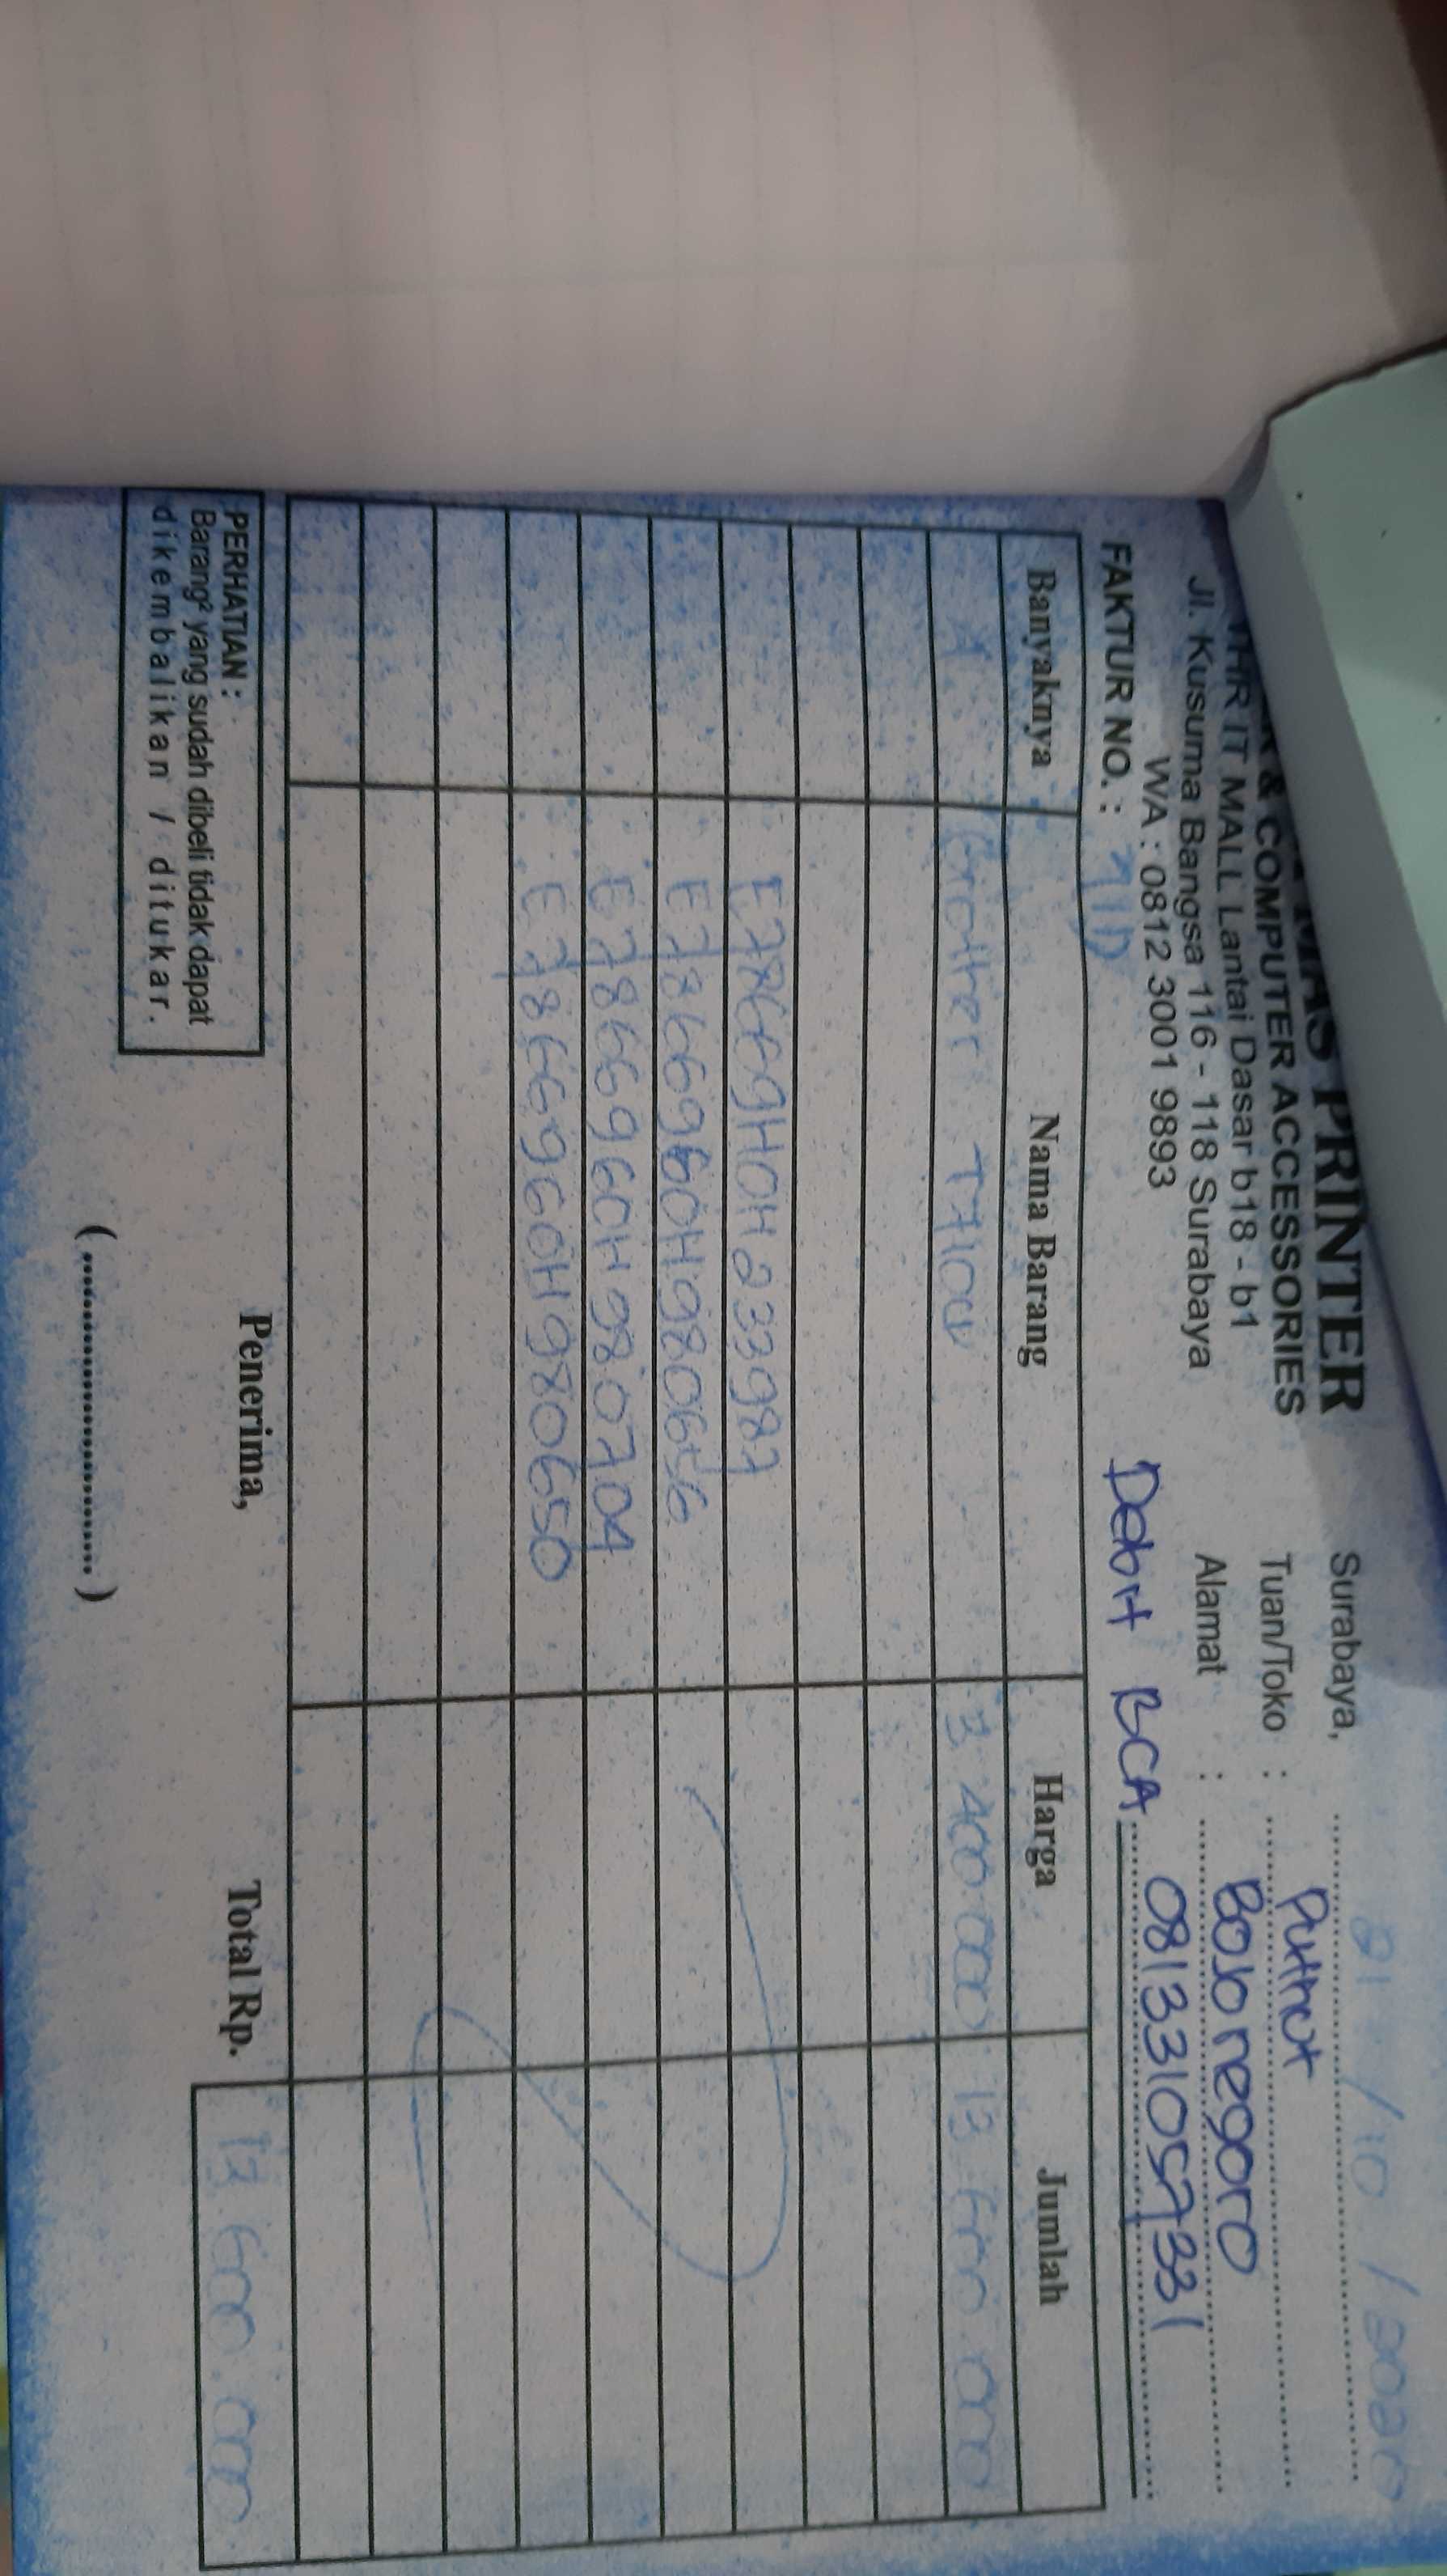 PRINTER
& COMPUTER ACCESSORIES
THR IT MALL Lantai Dasar b18 - b1
Jl. Kusuma Bangsa 116 - 118 Surabaya
WA : 0812 3001 9893
FAKTUR NO. :
Surabaya, 21 / 10 / 2020
Tuan/Toko :
Alamat : Bojonegoro
Debit BCA 081331057331
Banyaknya Nama Barang Harga Jumlah
4 Brother T710W 3.400.000 13.600.000
E78669H0H233987
E78669G0H980656
E78669G0H980704
E78669G0H980650
PERHATIAN :
Barang² yang sudah dibeli tidak dapat
dikembalikan / ditukar.
Penerima,
(........................)
Total Rp. 13.600.000